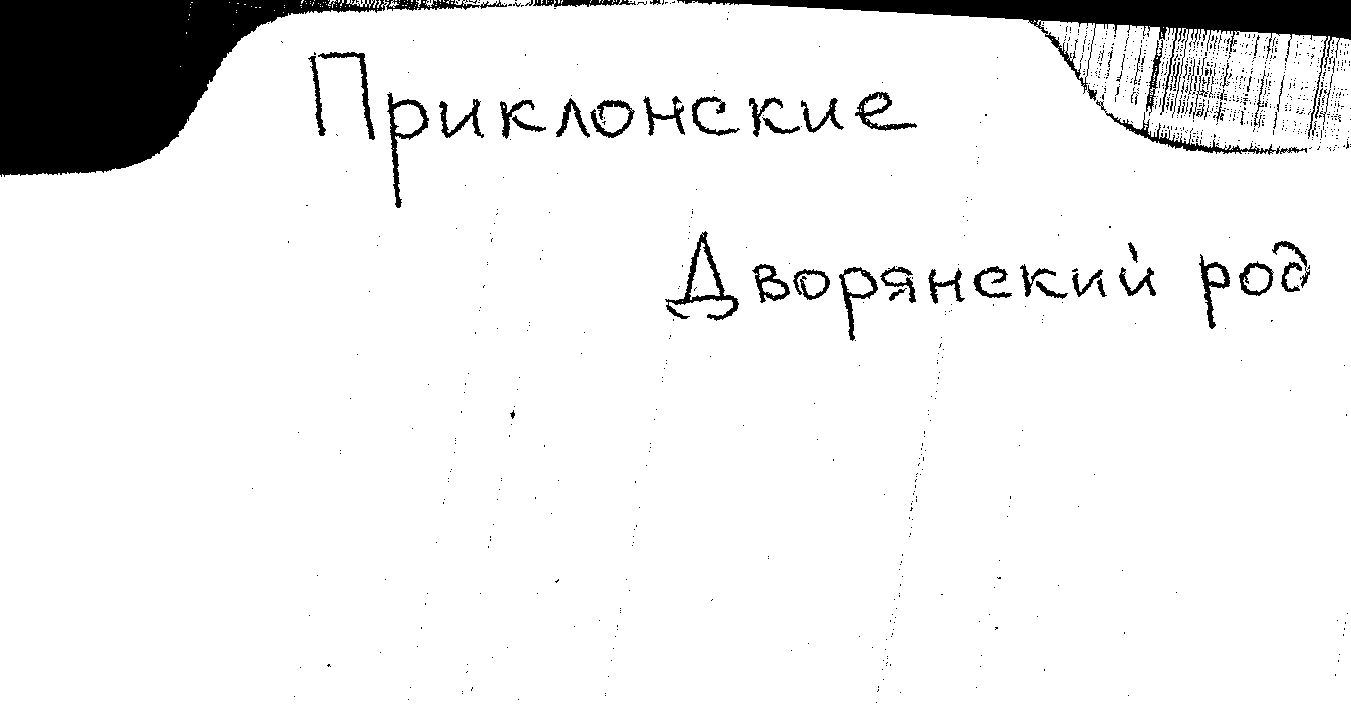 Приклонские
Дворянский род